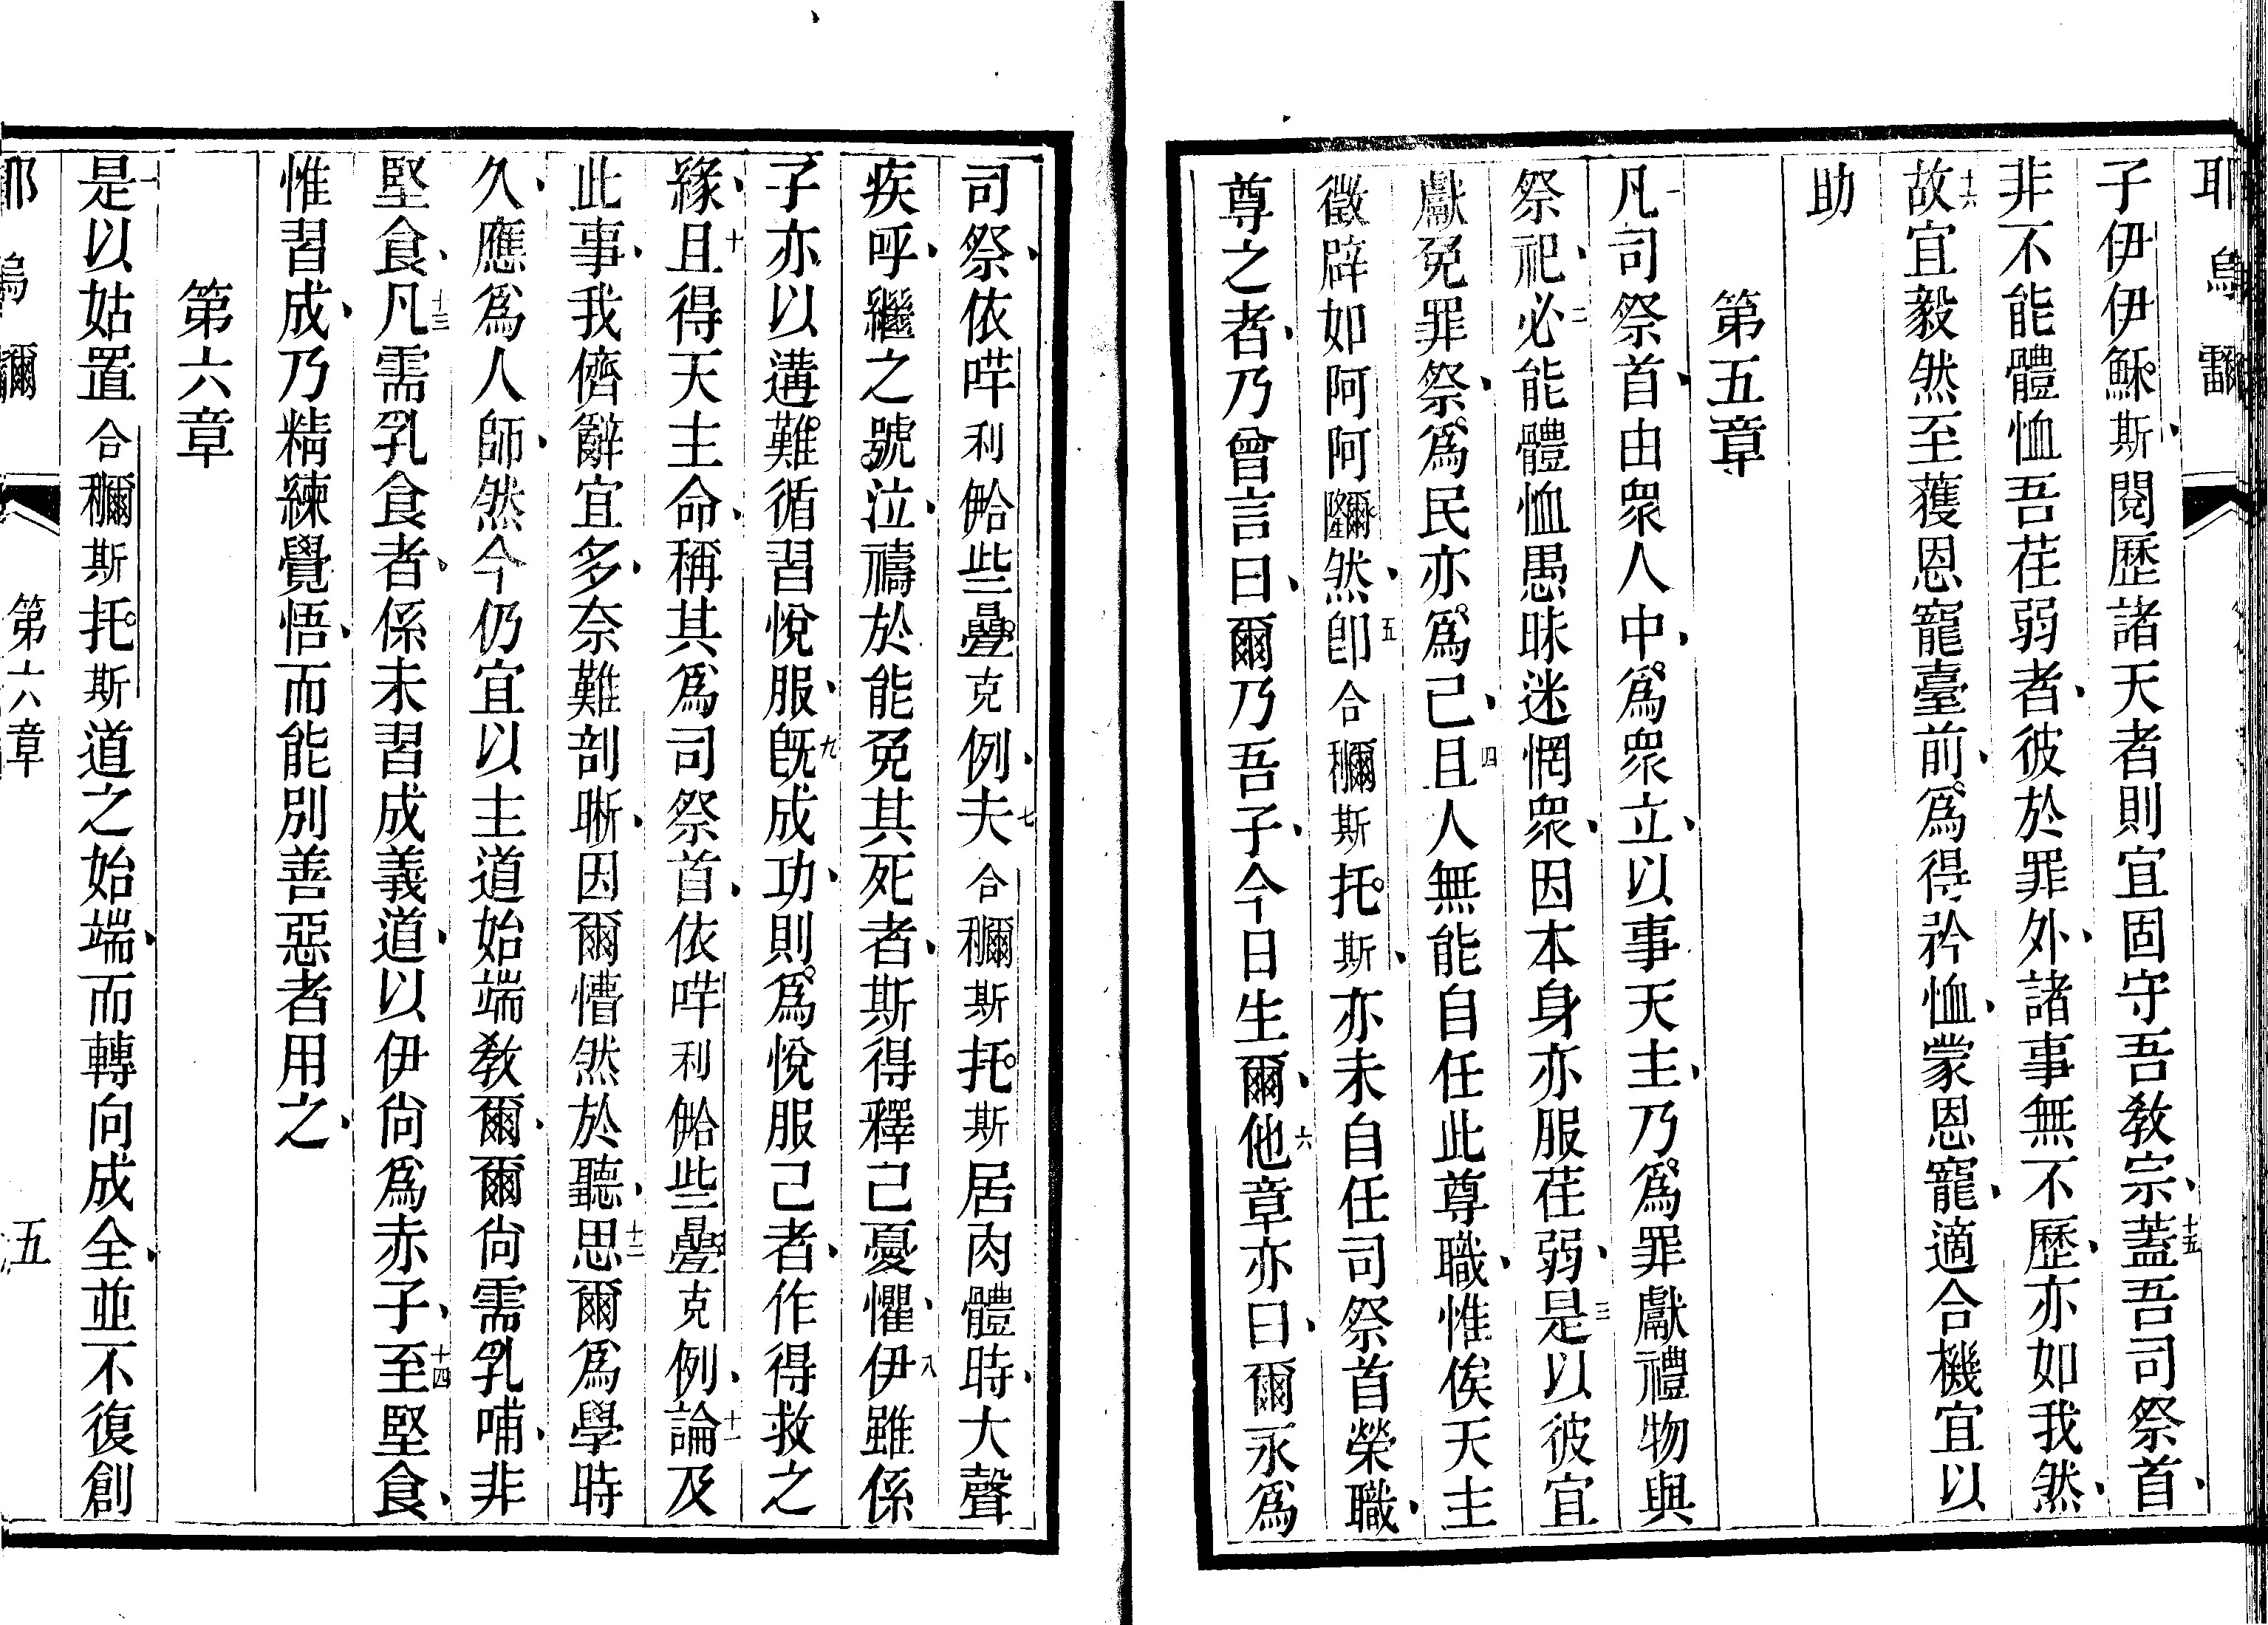 子伊伊穌斯閱歷諸天者則宜固守吾敎宗十五蓋吾司祭首
非不能體恤吾荏弱者彼於罪外諸事無不歷亦如我然
十六故宜毅然至獲恩寵臺前爲得矜恤蒙恩寵適合機宜以
助
第五章
一凡司祭首由衆人中爲衆立以事天主乃爲罪獻禮物與
祭祀二必能體恤愚昧迷惘衆因本身亦服荏弱三是以彼宜
獻免罪祭爲民亦爲己四且人無能自任此尊職惟俟天主
徵辟如阿阿隆然五卽合穪斯托斯亦未自任司祭首榮職
尊之者乃曾言曰爾乃吾子今日生爾六他章亦曰爾永爲
司祭依哶利帢些疊克例七夫合穪斯托斯居肉體時大聲
疾呼繼之號泣禱於能免其死者斯得釋己憂懼八伊雖係
子亦以遘難循習悅服九旣成功則爲悅服己者作得救之
緣十且得天主命稱其爲司祭首依哶利帢些疊克例十一論及
此事我儕辭宜多奈難剖晰因爾懵然於聽十二思爾爲學時
久應爲人師然今仍宜以主道始端敎爾爾尙需乳哺非
堅食十三凡需乳食者係未習成義道以伊尙爲赤子十四至堅食
惟習成乃精練覺悟而能別善惡者用之
第六章
一是以姑置合穪斯托斯道之始端而轉向成全並不復創
第六章
五